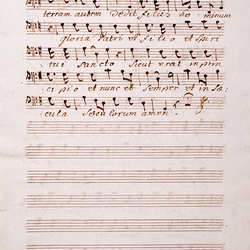 terram autem dedit filiis ho minum
gloria Patri et Filio et Spiri
tui Sancto Sicut erat in prin
cipio et nunc et Semper et in Sae
cula Seculorum amen.